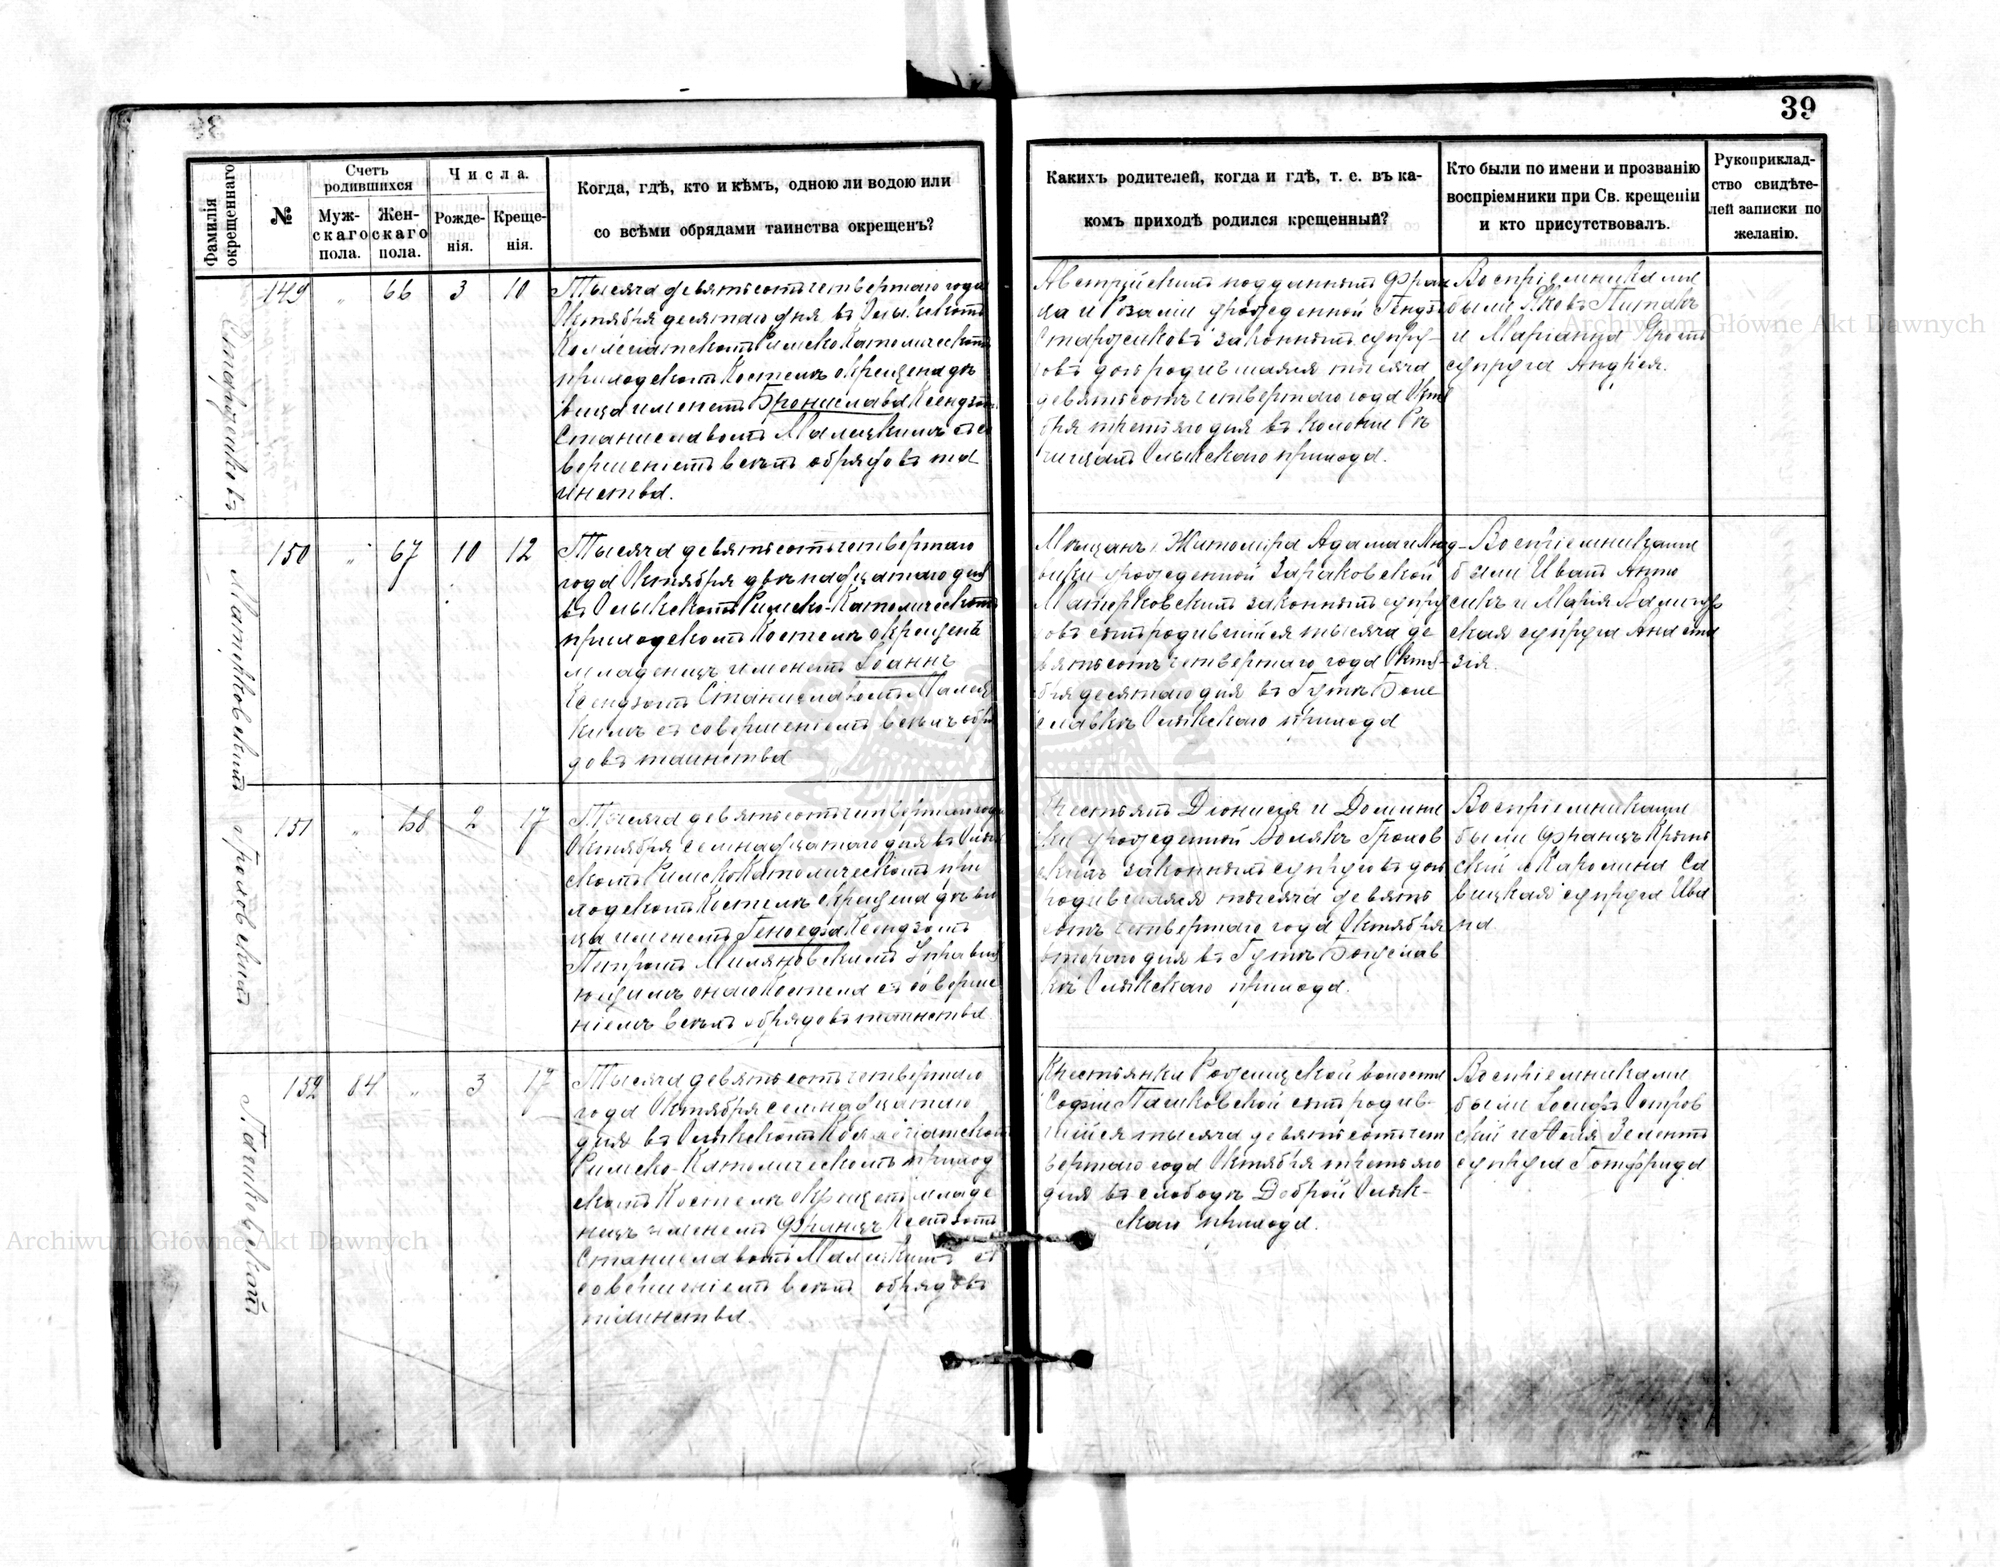 39
Фамилія окрещеннаго
№
Счетъ родившихся
Мужскаго пола.
Женскаго пола.
Числа.
Рожденія.
Крещенія.
Когда, гдѣ, кто и кѣмъ, одною ли водою или
со всѣми обрядами таинства окрещенъ?
Какихъ родителей, когда и гдѣ, т. е. въ ка-
комъ приходѣ родился крещенный?
Кто были по имени и прозванію
воспріемники при Св. крещеніи
и кто присутствовалъ.
Рукоприклад-
ство свидѣте-
лей записки по
желанію.
149 " 66 3 10
Тысяча девятьсотъ четвертаго года
Октября десятаго дня въ Олыкскомъ
Коллегіатскомъ Римско Католическомъ
приходскомъ Костелѣ окрещена дѣ
вица именемъ Брониславa Ксендзомъ
Станиславомъ Малецкимъ съ со
вершеніемъ всѣхъ обрядовъ та
инства.
Австрійскихъ подданныхъ Фран
ца и Розаліи урожденной
законныхъ супру-
овъ дочь родившаяся тысяча
девятьсотъ четвертаго года Октя
бря третьяго дня въ колоніи
Олыкскаго прихода.
Воспріемниками
были Яковъ
и Маріанна
супруга Андрея.
150 " 67 10 12
Матековскій
Тысяча девятьсотъ четвертаго
года Октября двѣнадцатаго дня
въ Олыкскомъ Римско-Католическомъ
приходскомъ Костелѣ окрещенъ
младенецъ именемъ Іоаннъ
Ксендзомъ Станиславомъ Малец
кимъ съ совершеніемъ всѣхъ обря
довъ таинства
Мѣщанъ г. Житоміра Адама и Люд
вики урожденной
законныхъ супру
овъ сынъ родившійся тысяча де
вятьсотъ четвертаго года Октя-
бря десятаго дня въ Гутѣ Боне
славкѣ Олыкскаго прихода
Воспріемниками
были Иванъ Анто
сикъ и Марія
ская супруга Анаста
зія.
151 " 68 2 17
Громовскій
Тысяча девятьсотъ четвертаго года
Октября семнадцатаго дня въ Олык
скомъ Римско Католическомъ при
ходскомъ Костелѣ окрещена дѣви
ца именемъ Геноефа Ксендзомъ
Петромъ Миляновскимъ Управля
ющимъ онаго Костела съ соверше
ніемъ всѣхъ обрядовъ таинства.
Крестьянъ Діонисія и Домини
ки урожденной Волякъ Громов
скихъ законныхъ супруговъ дочь
родившаяся тысяча девять
сотъ четвертаго года Октября
второго дня въ Гутѣ Богуслав
кѣ Олыкскаго прихода.
Воспріемниками
были Францъ
скій и Каролина Са
вицкая супруга Ива
на
152 64 " 3 17
Пашковскій
Тысяча девятьсотъ четвертаго
года Октября семнадцатаго
дня въ Олыкскомъ Коллегіатскомъ
Римско-Католическомъ приход
скомъ Костелѣ окрещенъ младе
нецъ именемъ Францъ Ксендзомъ
Станиславомъ Малецкимъ съ
совершеніемъ всѣхъ обрядовъ
таинства.
Крестьянки Рожищской волости
Софіи Пашковской сынъ родив-
шійся тысяча девятьсотъ чет
вертаго года Октября третьяго
дня въ слободѣ Доброй Олык-
скаго прихода.
Воспріемниками
были Іосифъ Остров
скій и
супруга Готфрида
Archiwum Główne Akt Dawnych
Archiwum Główne Akt Dawnych